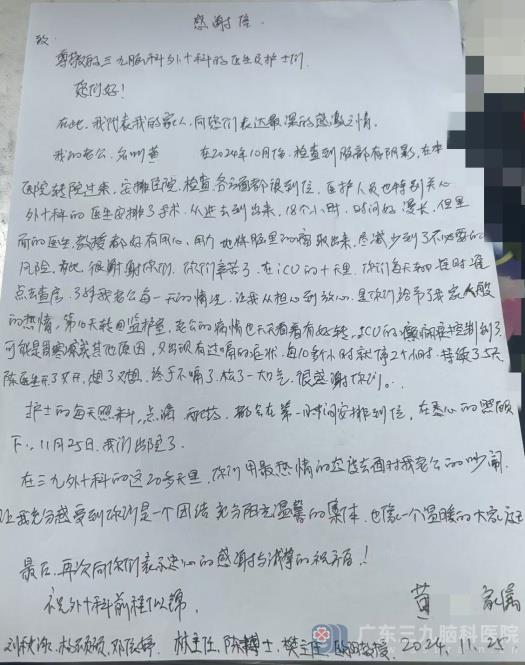 感谢信
致
尊敬的三九脑科外十科的医生及护士们
您们好!
在此,我代表我的家人,向您们表达最深的感激之情。
我的老公,名叫黄 在2024年10月份,检查到脑部有阴影,在本
医院转院过来,安排住院,检查各方面都很到位,医护人员也特别关心
外十科的医生安排了手术,从进去到出来,18个小时,时间好漫长,但里
面的医生,教授都好有用心,用力地将脑里的瘤取出来,尽减少到了不必要的
风险,在此,很谢谢你们,你们辛苦了。在ICU的十天里,你们每天都是时准
点去查房,了解我老公每一天的情况,让我从担心到放心,是你们给予了我家人般
的热情,第10天转回监护室,老公的病情也天天看着有好转,ICU的癫痫症控制到了
可能是胃寒或其他原因,又出现有过嗝的症状,每10多小时就停2个小时,持续了5天
陈医生开了又开,烟了又烟,终于不嗝了,松了一大口气,很感谢你们。
护士的每天照料,点滴,配药,都会在第一时间安排到位,在悉心的照顾
下,11月25日,我们出院了
在三九外十科的这20多天里,你们用最热情的态度去面对我老公的吵闹
让我充分感受到你们是一个团结充分阳光温馨的集体,也像一个温暖的大家庭
最后,再次向你们表示衷心的感谢与诚挚的祝福!
祝外十科前程似锦,
黄 家属
林主任,陈博士,樊主任,欧阳教授,2024.11.25
广东三九脑科医院